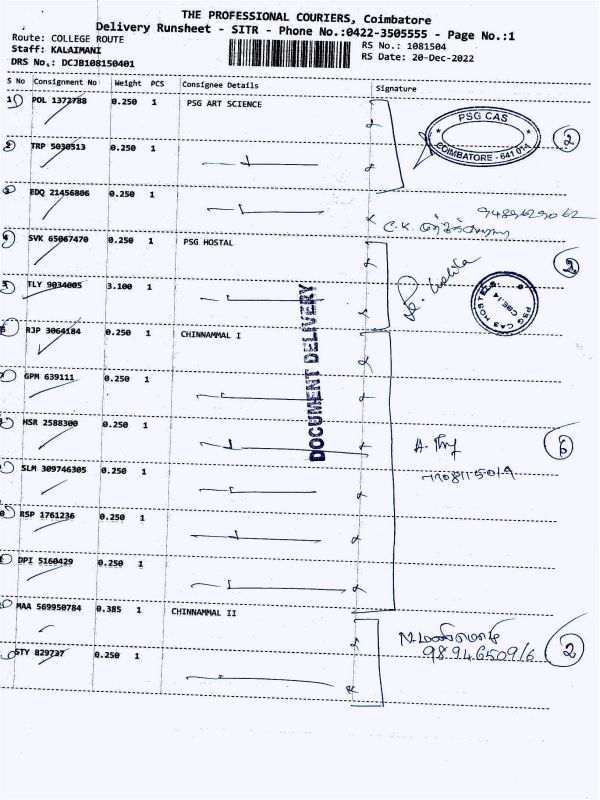 THE PROFESSIONAL COURIERS, Coimbatore
Delivery Runsheet - SITR - Phone No.:0422-3505555 - Page No.:1
Route: COLLEGE ROUTE
RS No.: 1081504
Staff: KALAIMANI
RS Date: 20-Dec-2022
DRS No.: DCJB108150401
S No Consignment No Weight PCS Consignee Details Signature
1 POL 1372788 0.250 1 PSG ART SCIENCE
PSG CAS
COIMBATORE - 641 014
2
TRP 5030513 0.250 1
EDQ 21456806 0.250 1
C.K.
SVK 65067470 0.250 1 PSG HOSTAL
2
TLY 9034005 3.100 1
PSG CAS HOSTELS
CBE-14
RJP 3064184 0.250 1 CHINNAMMAL I
DOCUMENT DELIVERY
GPM 639111 0.250 1
HSR 2588300 0.250 1
SLM 309746305 0.250 1
RSP 1761236 0.250 1
DPI 5160429 0.250 1
MAA 569950784 0.385 1 CHINNAMMAL II
9894650916
2
STY 829737 0.250 1